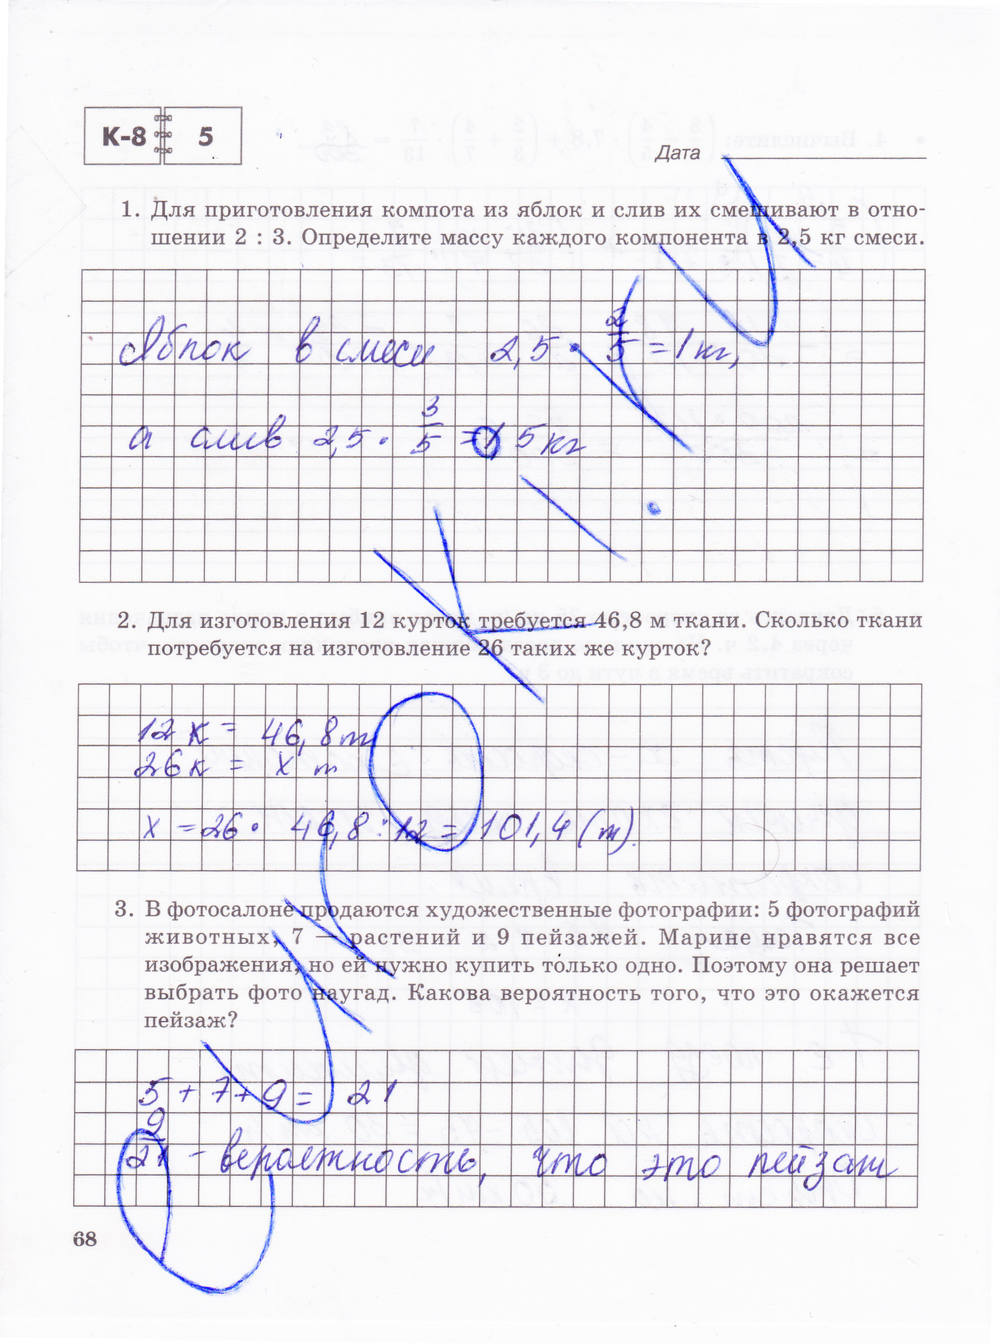 К-8 5
Дата
1. Для приготовления компота из яблок и слив их смешивают в отно-
шении 2 : 3. Определите массу каждого компонента в 2,5 кг смеси.
Яблок в смеси 2,5 · 2/5 = 1 кг,
а слив 2,5 · 3/5 = 1,5 кг
2. Для изготовления 12 курток требуется 46,8 м ткани. Сколько ткани
потребуется на изготовление 26 таких же курток?
12 к = 46,8 m
26 к = x m
x = 26 · 46,8 : 12 = 101,4 (m).
3. В фотосалоне продаются художественные фотографии: 5 фотографий
животных, 7 — растений и 9 пейзажей. Марине нравятся все
изображения, но ей нужно купить только одно. Поэтому она решает
выбрать фото наугад. Какова вероятность того, что это окажется
пейзаж?
5 + 7 + 9 = 21
9/21 - вероятность, что это пейзаж
68